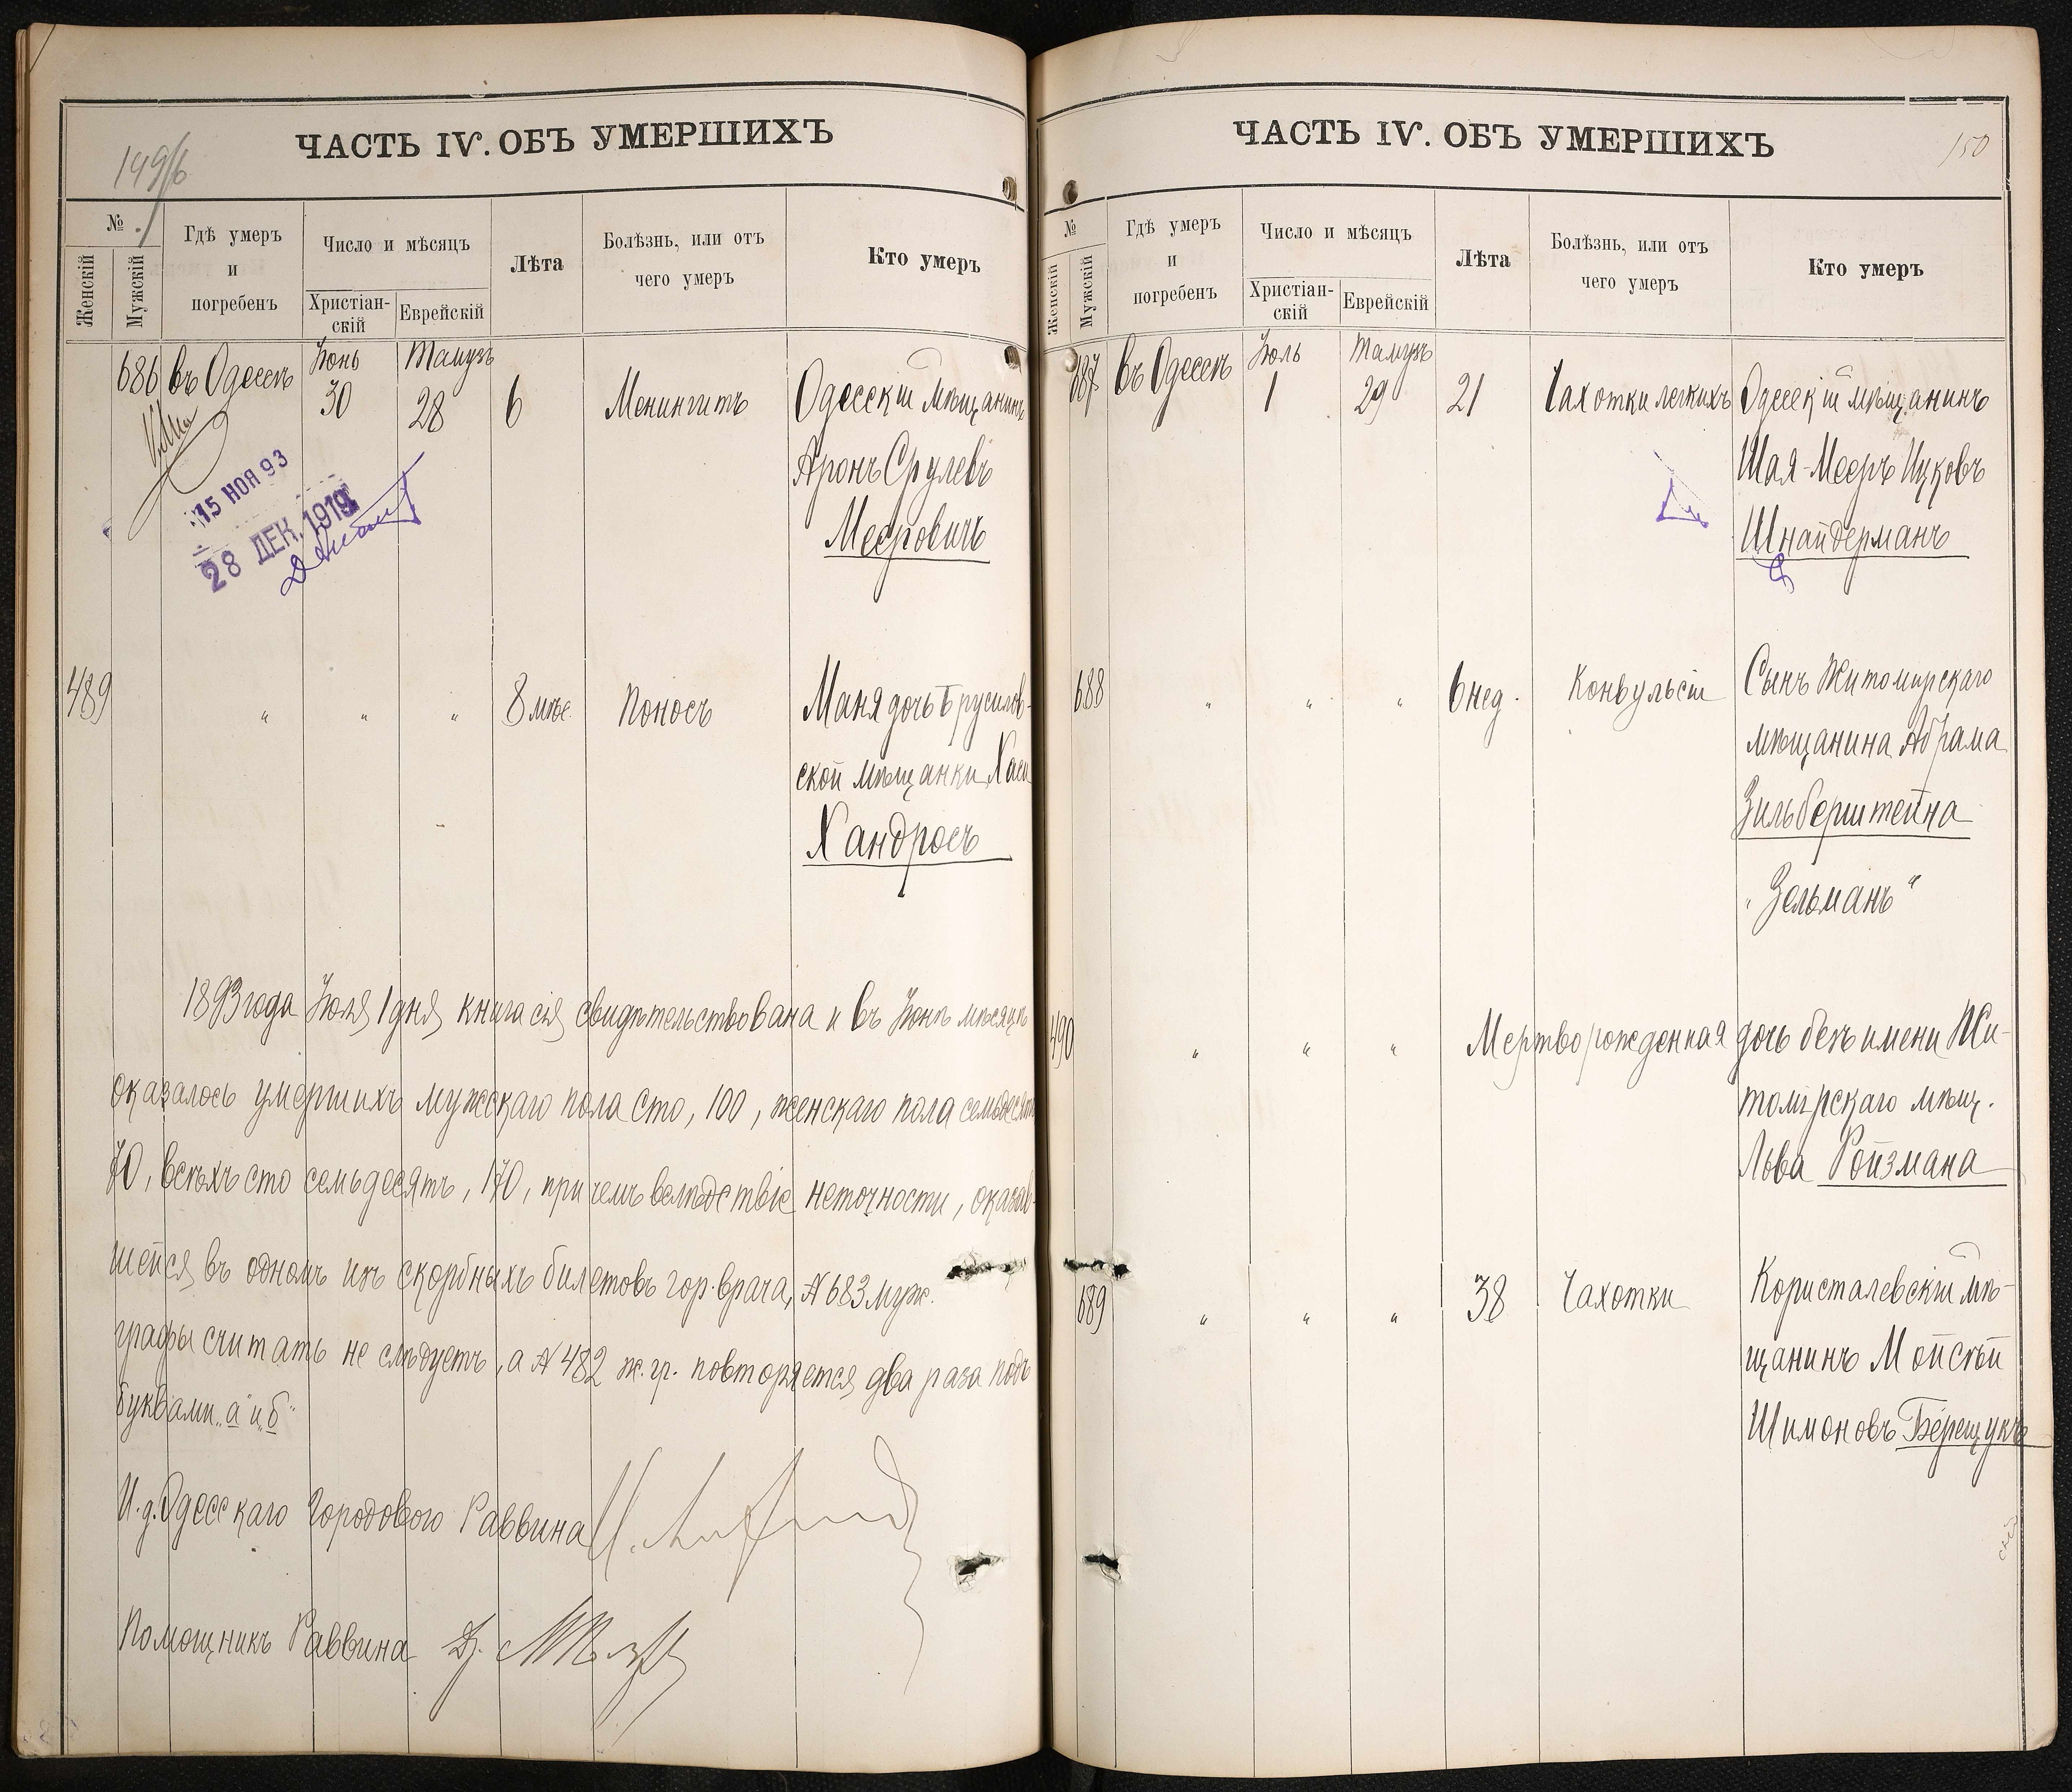 ЧАСТЬ IV. ОБЪ УМЕРШИХЪ
149/б
№
Женскій
Мужскій
Гдѣ умеръ и погребенъ
Число и мѣсяцъ
Христіан-
скій
Еврейскій
Лѣта
Болѣзнь, или отъ
чего умеръ
Кто умеръ
686 въ Одессѣ Іюнь 30 Тамузъ 28 6 Менингитъ Одесскій мѣщанинъ
Аронъ Срулевъ
Мееровичъ
15 НОЯ 93
28 ДЕК. 1919
489 " " " 8 мѣс. Поносъ Маня дочь Трусилов-
ской мѣщанки Хаси
Хандросъ
1893 года Іюля 1 дня книга сія свидѣтельствована и въ Іюнѣ мѣсяцѣ
оказалось умершихъ мужскаго пола сто, 100, женскаго пола семьдесятъ
70, всѣхъ сто семьдесятъ, 170, при чемъ вслѣдствіе неточности, оказав-
шейся въ одномъ изъ скорбныхъ билетовъ гор. врача, № 683 муж.
графы считать не слѣдуетъ, а № 482 ж. гр. повторяется два раза подъ
буквами „а" и „б"
И. д. Одесскаго Городового Раввина
Помощникъ Раввина
ЧАСТЬ IV. ОБЪ УМЕРШИХЪ
150
№
Женскій
Мужскій
Гдѣ умеръ
и
погребенъ
Число и мѣсяцъ
Христіан-
скій
Еврейскій
Лѣта
Болѣзнь, или отъ
чего умеръ
Кто умеръ
687 въ Одессѣ Іюль 1 Тамузъ 29 21 Чахотки легкихъ Одесскій мѣщанинъ
Шая-Мееръ Ицковъ
Шнайдерманъ
688 " " " 6 нед. Конвульсіи Сынъ Житомирскаго
мѣщанина Абрама
Зильберштейна
„Зельманъ"
490 " " " Мертворожденная дочь безъ имени Жи-
томірскаго мѣщ.
Льва Ройзмана
689 " " " 38 Чахотки Користалевскій мѣ-
щанинъ Мойсѣй
Шимоновъ Берещукъ